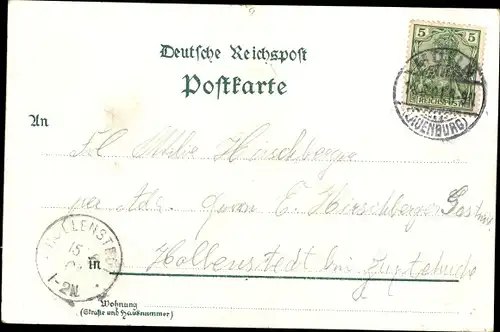 5 5
REICHSPOST
(LAUENBURG)
Deutsche Reichspost
Postkarte
An
Frl Hirschberger
per Adr. Herrn E. Hirschberger
HOLLENSTEDT
15
1-2N.
in Hollenstedt bei Buxtehude
Wohnung
(Straße und Hausnummer)